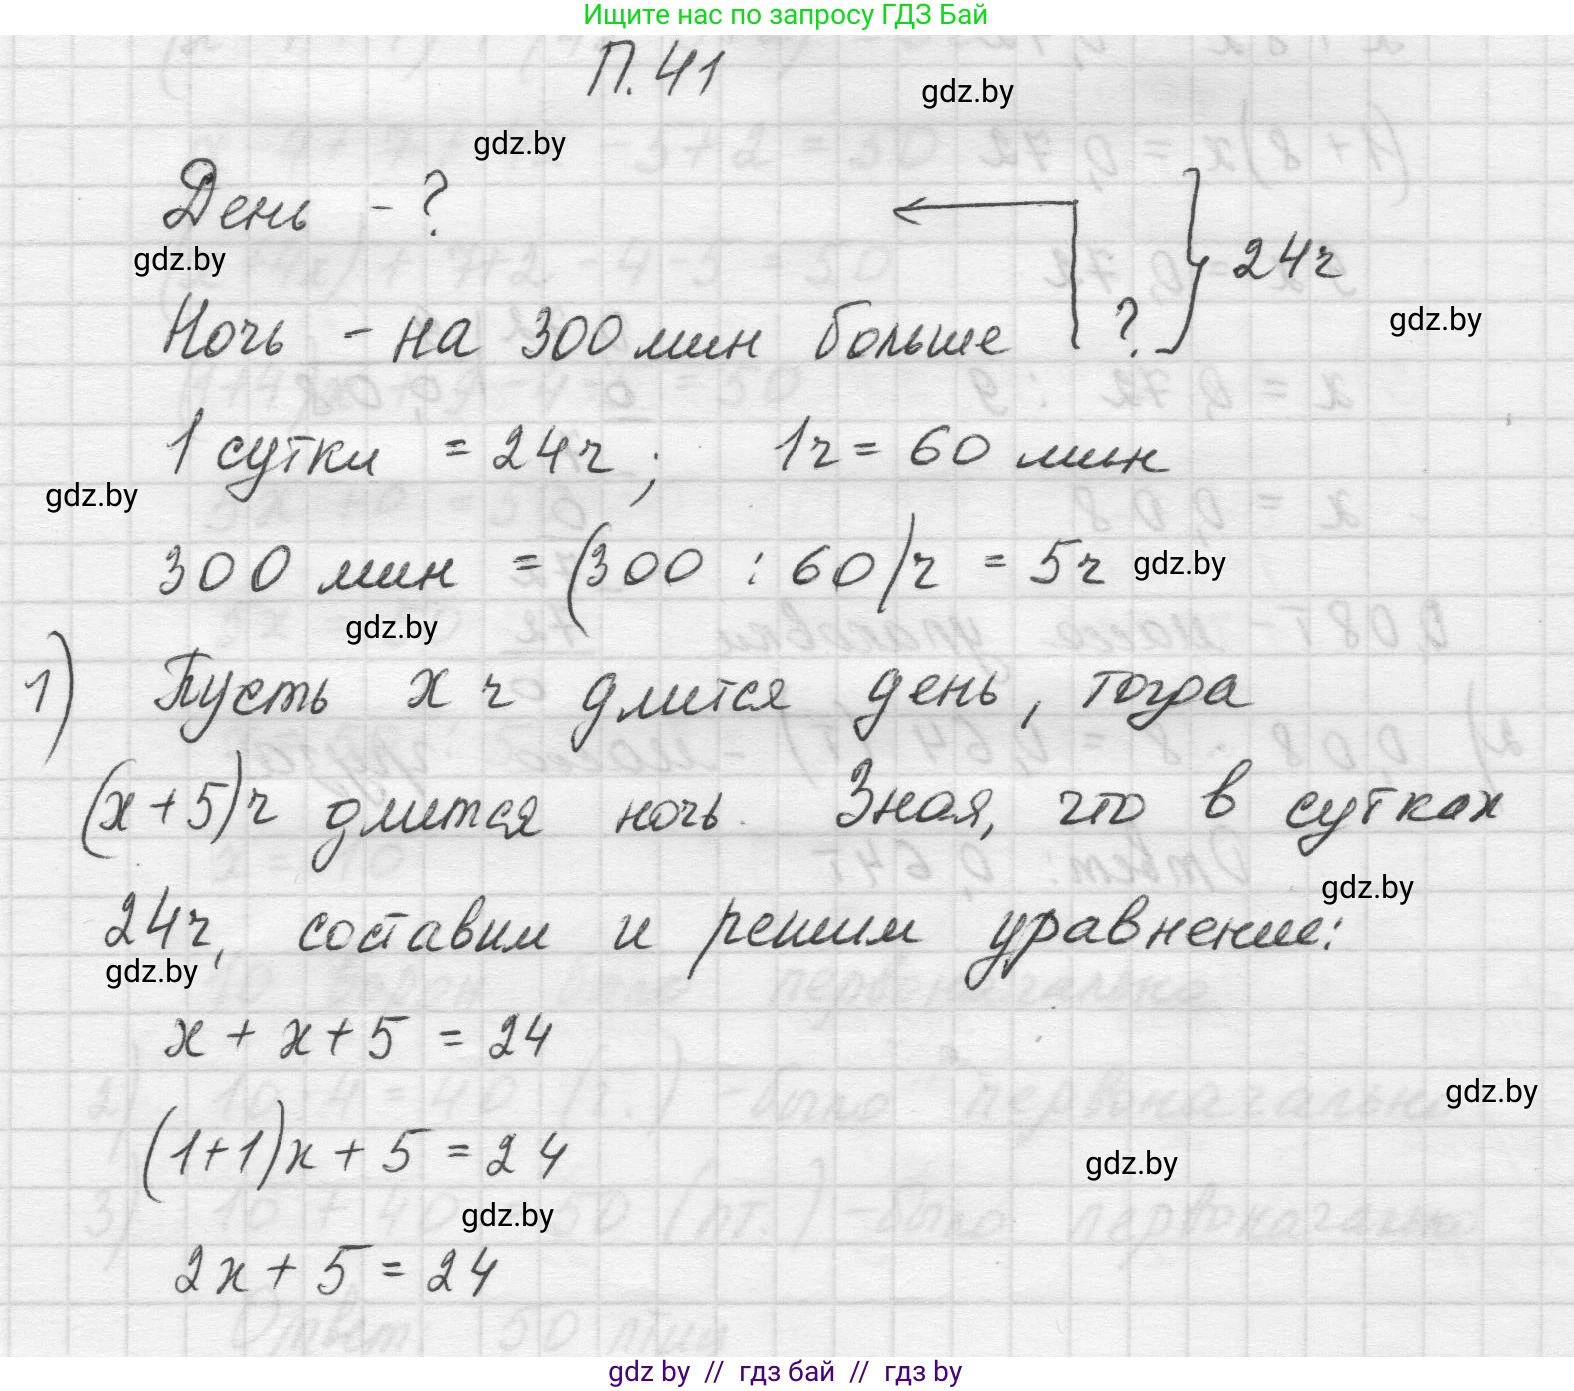 Ищите нас по запросу ГДЗ Бай
П.41
gdz.by
gdz.by
День - ?
gdz.by
24ч
Ночь - на 300 мин больше ?
gdz.by
1 сутки = 24ч; 1ч = 60 мин
gdz.by
300 мин = (300 : 60)ч = 5ч
gdz.by
gdz.by
1) Пусть x ч длится день, тогда
(x+5)ч длится ночь. Зная, что в сутках
gdz.by
24ч, составим и решим уравнение:
gdz.by
x + x + 5 = 24
gdz.by
(1+1)x + 5 = 24
gdz.by
gdz.by
2x + 5 = 24
gdz by // гдз бай // гдз by